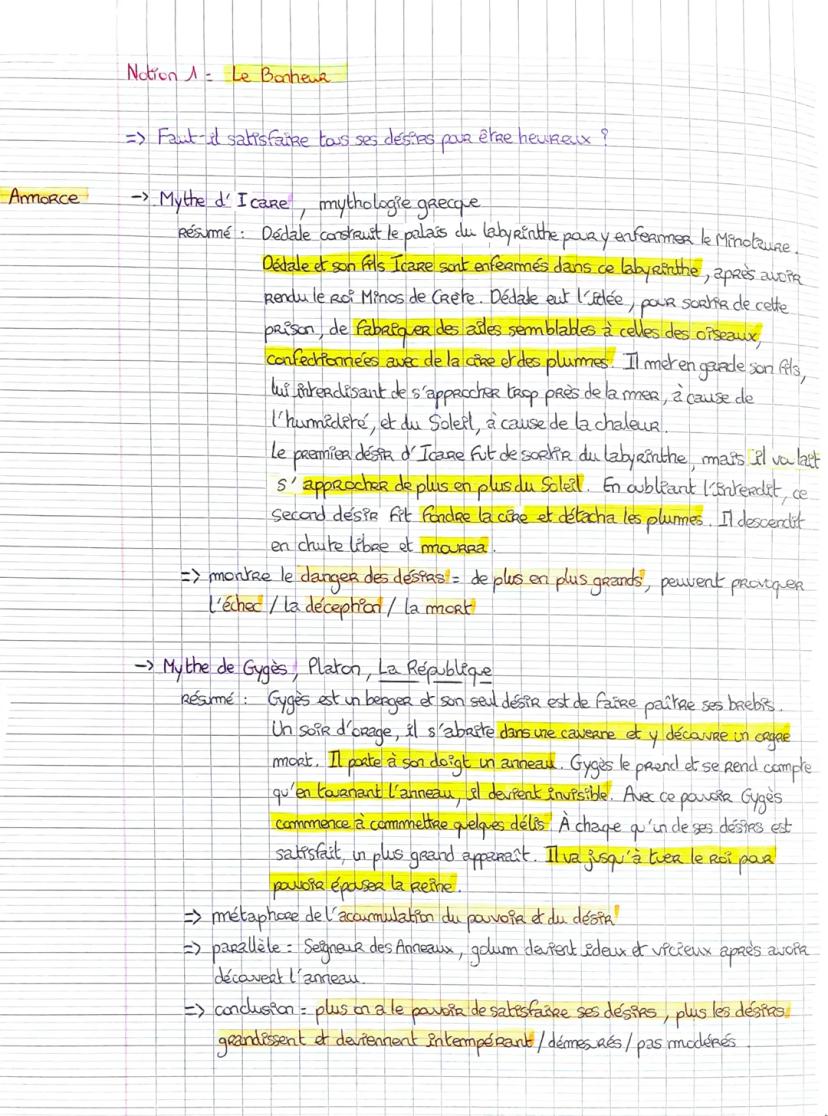 Notion 1 = Le Bonheur
=> Faut-il satisfaire tous ses désirs pour être heureux ?
Annorce -> Mythe d'Icare, mythologie grecque
Résumé : Dédale construit le palais du labyrinthe pour y enfermer le Minotaure.
Dédale et son fils Icare sont enfermés dans ce labyrinthe, après avoir
rendu le roi Minos de Crète. Dédale eut l'idée, pour sortir de cette
prison, de fabriquer des ailes semblables à celles des oiseaux,
confectionnées avec de la cire et des plumes. Il met en garde son fils,
lui interdisant de s'approcher trop près de la mer, à cause de
l'humidité, et du Soleil, à cause de la chaleur.
Le premier désir d'Icare fut de sortir du labyrinthe, mais il voulait
s'approcher de plus en plus du Soleil. En oubliant l'interdit, ce
second désir fit fondre la cire et détacha les plumes. Il descendit
en chute libre et mourra.
=> montre le danger des désirs = de plus en plus grands, peuvent provoquer
l'échec / la déception / la mort
-> Mythe de Gygès, Platon, La République
Résumé : Gygès est un berger et son seul désir est de faire paître ses brebis.
Un soir d'orage, il s'abrite dans une caverne et y découvre un ogre
mort. Il porte à son doigt un anneau. Gygès le prend et se rend compte
qu'en tournant l'anneau, il devient invisible. Avec ce pouvoir Gygès
commence à commettre quelques délis. À chaque qu'un de ses désirs est
satisfait, un plus grand apparaît. Il va jusqu'à tuer le Roi pour
pouvoir épouser la reine.
=> métaphore de l'accumulation du pouvoir et du désir
=> parallèle = Seigneur des Anneaux, golum devient ideux et vicieux après avoir
découvert l'anneau.
=> conclusion = plus on a le pouvoir de satisfaire ses désirs, plus les désirs
grandissent et deviennent intempérant / démesurés / pas modérés